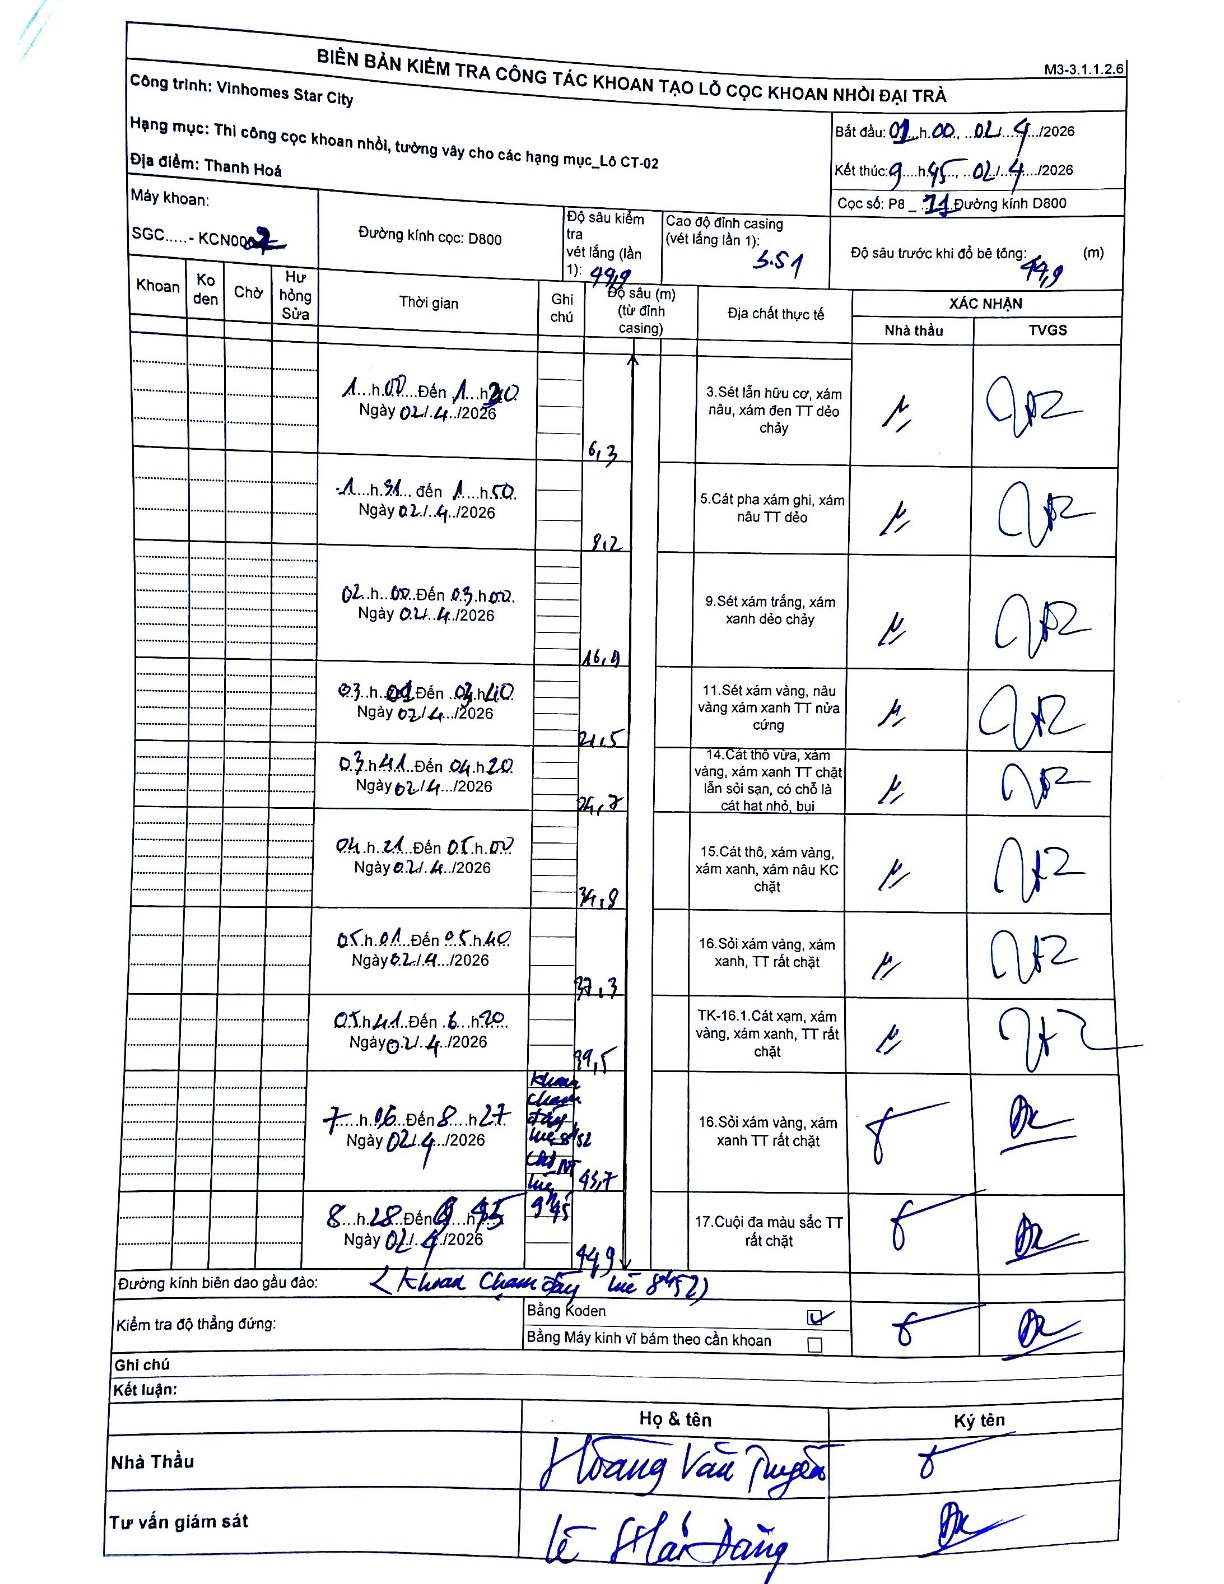 M3-3.1.1.2.6
BIÊN BẢN KIỂM TRA CÔNG TÁC KHOAN TẠO LỖ CỌC KHOAN NHỒI ĐẠI TRÀ
Công trình: Vinhomes Star City
Hạng mục: Thi công cọc khoan nhồi, tường vây cho các hạng mục_Lô CT-02
Địa điểm: Thanh Hoá
Bắt đầu: 01...h.00., ..02/..4.../2026
Kết thúc: 9....h.45.., ..02/...4..../2026
Cọc số: P8 _ .11.Đường kính D800
Máy khoan:
SGC.....- KCN00
Đường kính cọc: D800
Độ sâu kiểm
tra
vét lắng (lần
1): 44,9
Cao độ đỉnh casing
(vét lắng lần 1):
3.51
Độ sâu trước khi đổ bê tông: 44,9 (m)
Khoan
Ko
den
Chờ
Hư
hỏng
Sửa
Thời gian
Ghi
chú
Độ sâu (m)
(từ đỉnh
casing)
Địa chất thực tế
XÁC NHẬN
Nhà thầu
TVGS
1...h.00....Đến .1...h30.
Ngày 02/.4.../2026
6,3
3.Sét lẫn hữu cơ, xám
nâu, xám đen TT dẻo
chảy
.1....h.31... đến 1....h.50.
Ngày 02./..4.../2026
9,2
5.Cát pha xám ghi, xám
nâu TT dẻo
02..h...00..Đến 03.h00.
Ngày 02./..4./2026
16,9
9.Sét xám trắng, xám
xanh dẻo chảy
03..h..01.Đến .03.h40.
Ngày 02/..4.../2026
21,5
11.Sét xám vàng, nâu
vàng xám xanh TT nửa
cứng
03.h41..Đến 04.h20.
Ngày 02/..4.../2026
24,7
14.Cát thô vừa, xám
vàng, xám xanh TT chặt
lẫn sỏi sạn, có chỗ là
cát hạt nhỏ, bụi
04..h.21...Đến 05.h.00
Ngày 02./..4../2026
34,9
15.Cát thô, xám vàng,
xám xanh, xám nâu KC
chặt
05.h.01...Đến 05.h.40.
Ngày 02./.4..../2026
37,3
16.Sỏi xám vàng, xám
xanh, TT rất chặt
05.h41..Đến .6...h20.
Ngày 02./..4../2026
39,5
TK-16.1.Cát xạm, xám
vàng, xám xanh, TT rất
chặt
7.....h.06..Đến 8...h 27.
Ngày 02/..4../2026
Khoan
chạm
đáy
lúc 8h52
chờ NT
lúc
9h45
43,7
16.Sỏi xám vàng, xám
xanh TT rất chặt
8...h.28..Đến 9...h.45
Ngày 02/.4../2026
44,9
17.Cuội đa màu sắc TT
rất chặt
Đường kính biên dao gầu đào: (Khoan chạm đáy lúc 8h52)
Kiểm tra độ thẳng đứng:
Bằng Koden
Bằng Máy kinh vĩ bám theo cần khoan
Ghi chú
Kết luận:
Họ & tên
Ký tên
Nhà Thầu
Hoàng Văn Tuyền
Tư vấn giám sát
Lê Hải Đăng